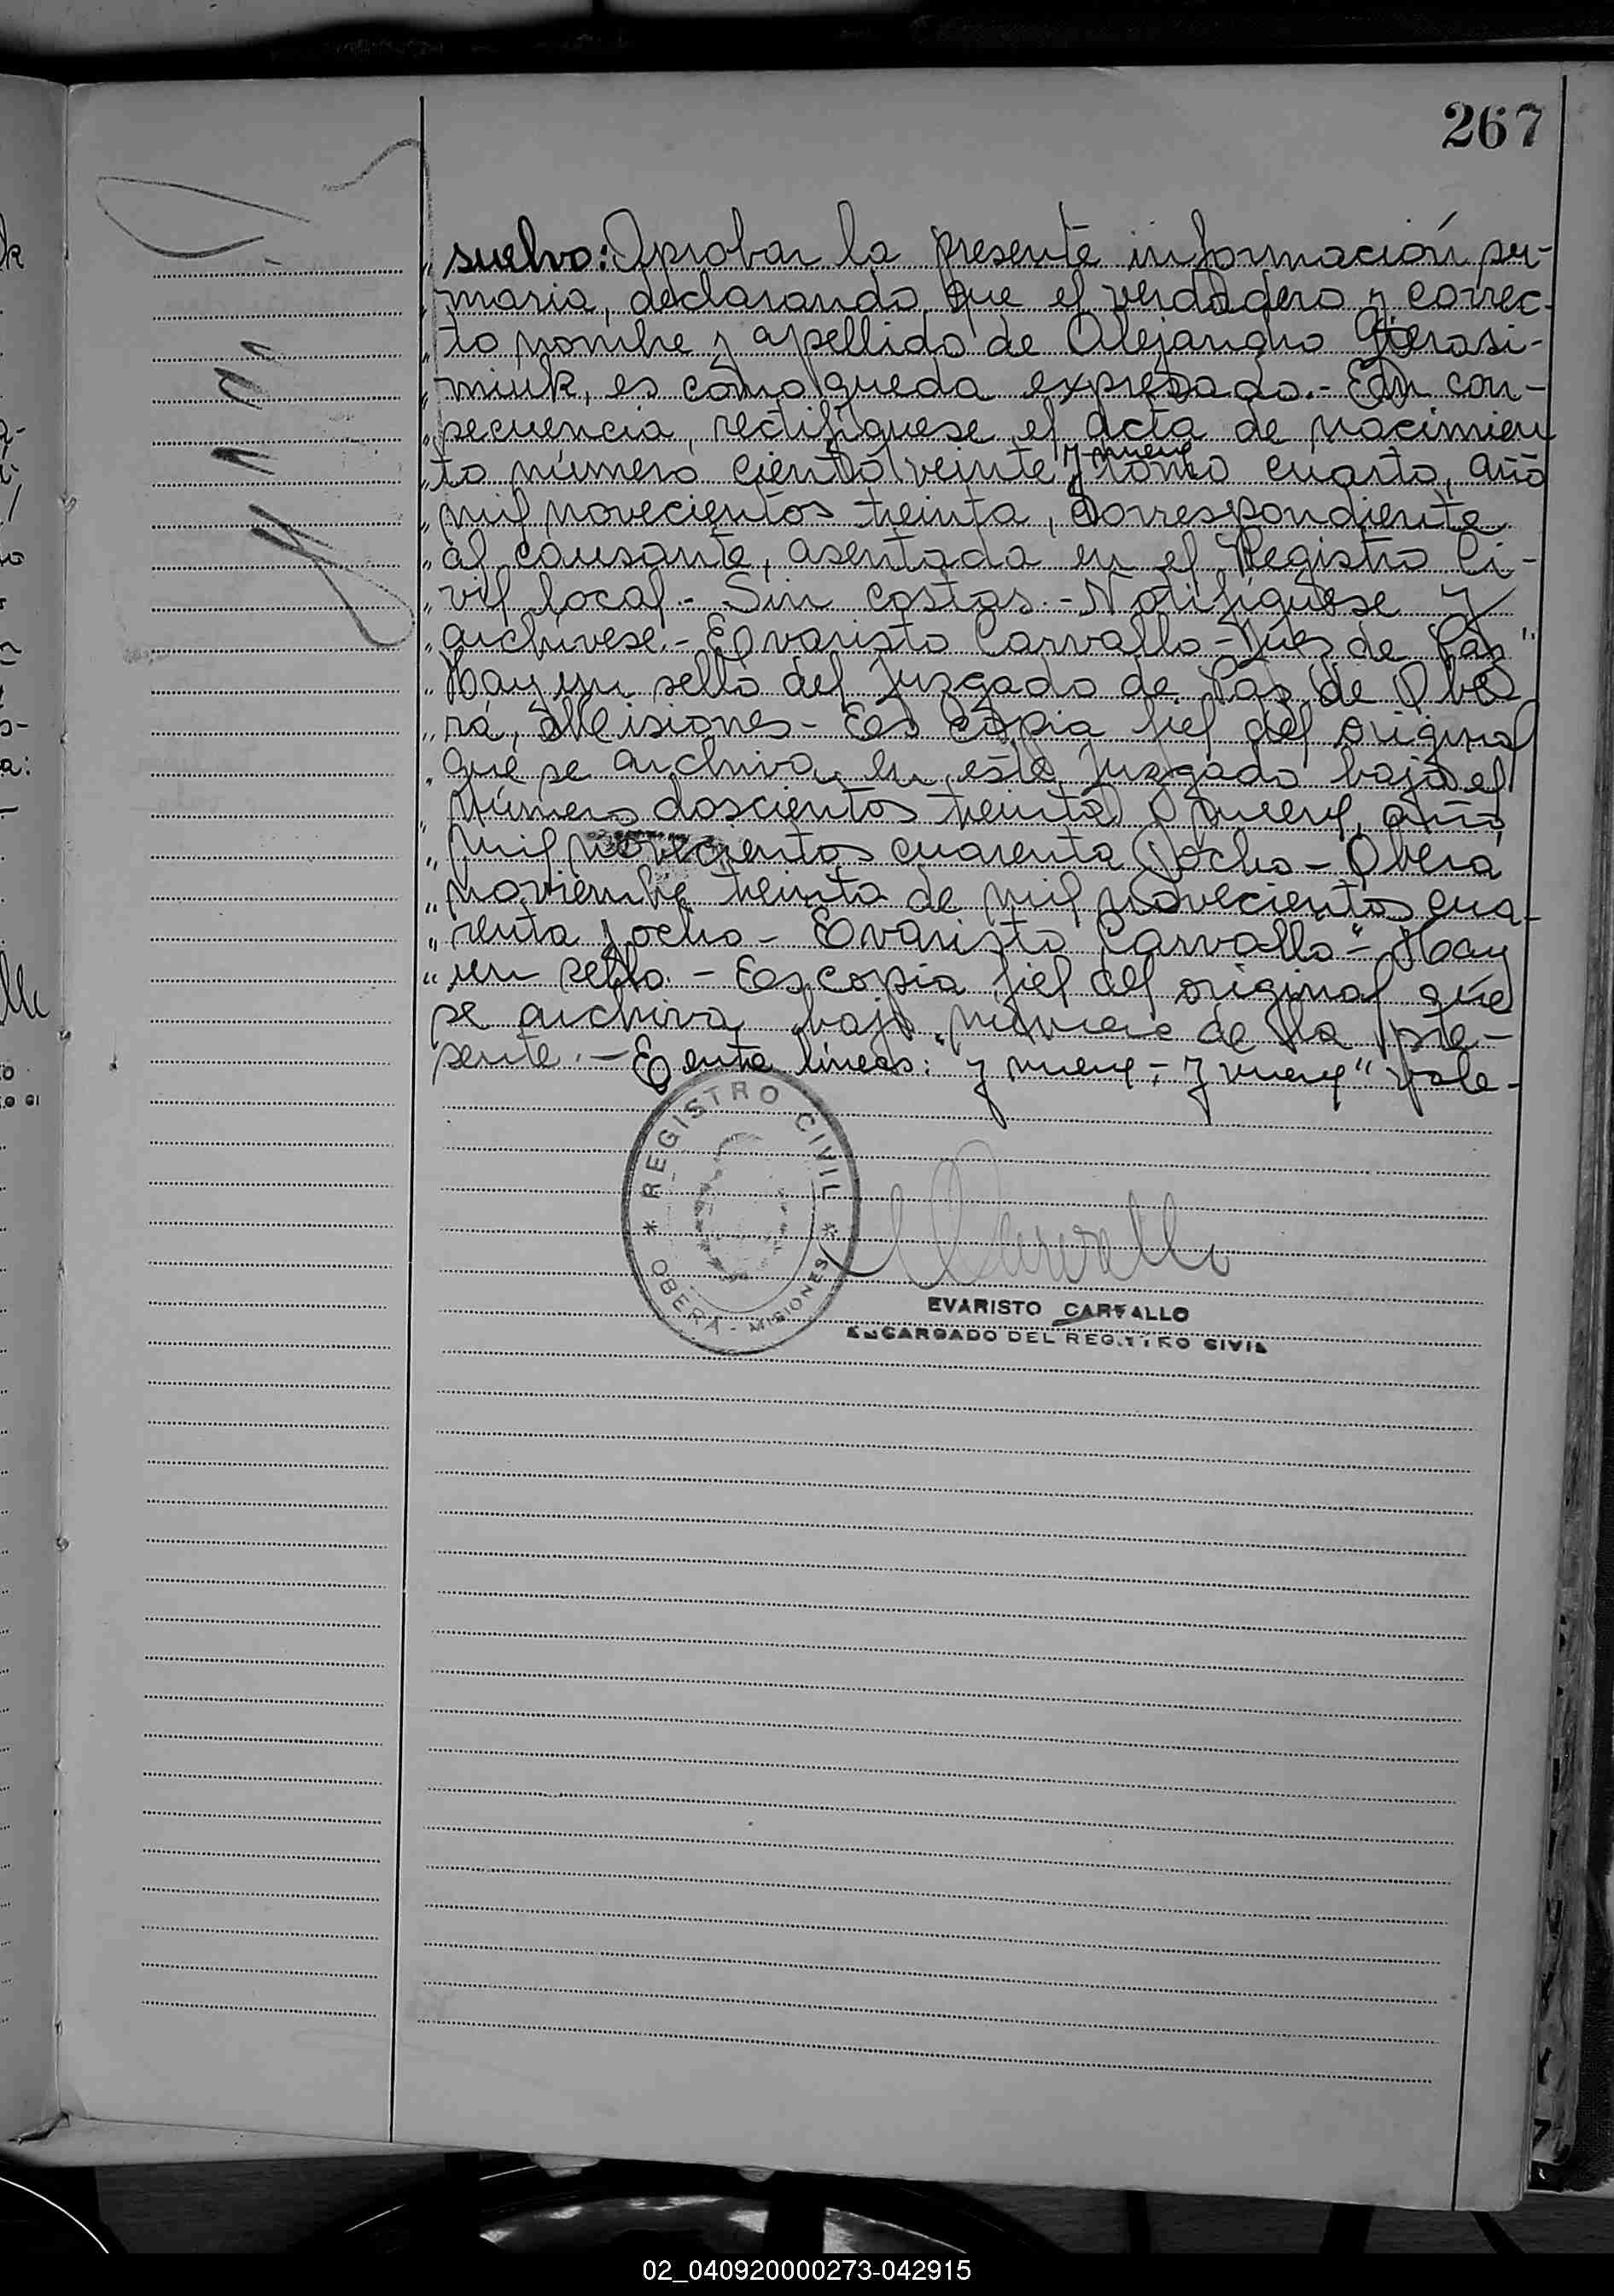 267
„ suelvo: Aprobar la presente información su-
„ maria, declarando que el verdadero y correc-
„ to nombre y apellido de Alejandro Gierasi-
„ miuk, es cómo queda expresado.- En con-
„ secuencia, rectifíquese el acta de nacimien
„ to número ciento veinte y nueve tomo cuarto, año
„ mil novecientos treinta, correspondiente
„ al causante, asentada en el Registro Ci-
„ vil local.- Sin costas.- Notifíquese y
„ archívese.- Evaristo Carvallo - Jues de Pás"
„ Hay un sello del Juzgado de Pas de Obe
„ rá, Misiones - Es copia fiel del original
„ que se archiva en este Juzgado bajo el
„ Número doscientos treinta y nueve, año
„ mil novecientos cuarenta y ocho - Oberá
„ noviembre treinta de mil novecientos cua-
„ renta y ocho - Evaristo Carvallo" - Hay
„ un sello. - Es copia fiel del original que
se archiva bajo número de la pre-
sente. - E entre líneas: y nueve - y nueve" vale-
REGISTRO CIVIL
* OBERA - MISIONES *
Carvallo
EVARISTO CARVALLO
ENCARGADO DEL REGISTRO CIVIL
02_040920000273-042915